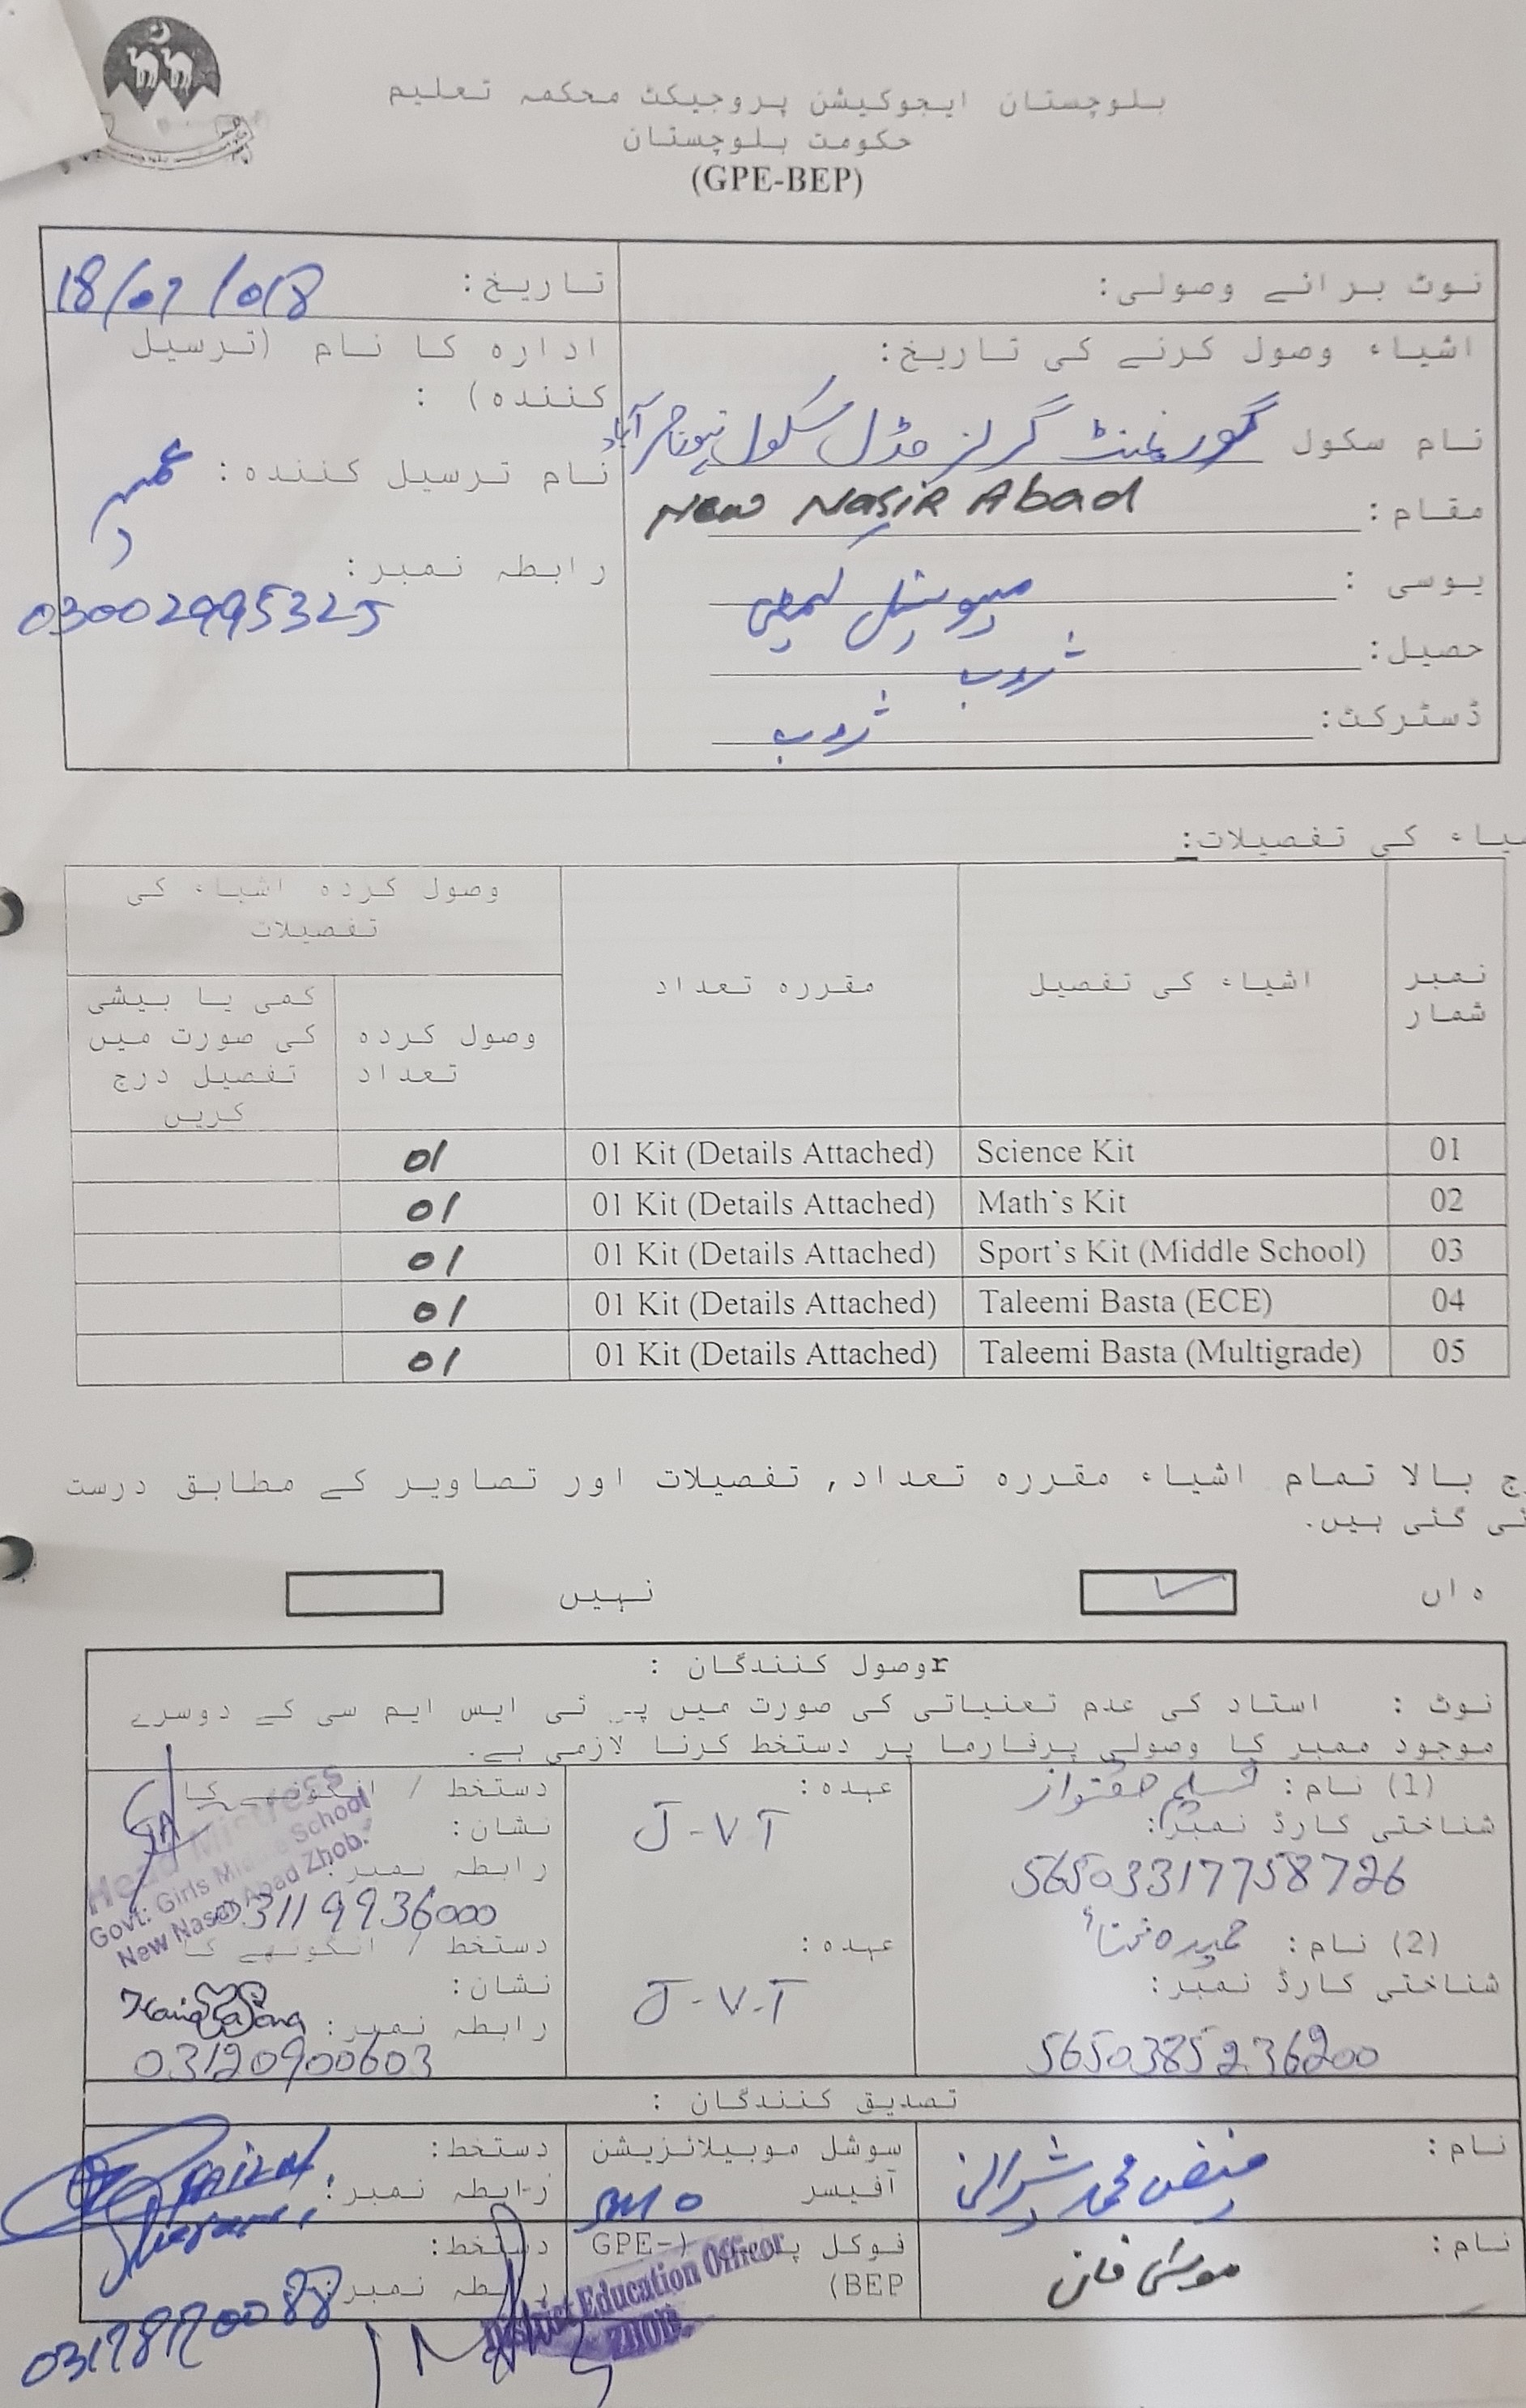 بلوچستان ایجوکیشن پروجیکٹ محکمہ تعلیم
حکومت بلوچستان
(GPE-BEP)
نوٹ برائے وصولی:
تاریخ: 18/07/018
اشیاء وصول کرنے کی تاریخ:
ادارہ کا نام (ترسیل
کنندہ) :
نام سکول گورنمنٹ گرلز مڈل سکول نیو ناصر آباد
نام ترسیل کنندہ:
مقام: New Nasir Abad
رابطہ نمبر:
03002995325
یوسی : میونسپل کمیٹی
حصیل: ژوب
ڈسٹرکٹ: ژوب
شیاء کی تفصیلات:
نمبر شمار
اشیاء کی تفصیل
مقررہ تعداد
وصول کردہ اشیاء کی تفصیلات
وصول کردہ تعداد
کمی یا بیشی کی صورت میں تفصیل درج کریں
01 Science Kit 01 Kit (Details Attached) 01
02 Math's Kit 01 Kit (Details Attached) 01
03 Sport's Kit (Middle School) 01 Kit (Details Attached) 01
04 Taleemi Basta (ECE) 01 Kit (Details Attached) 01
05 Taleemi Basta (Multigrade) 01 Kit (Details Attached) 01
رج بالا تمام اشیاء مقررہ تعداد, تفصیلات اور تصاویر کے مطابق درست
ئی گئی ہیں.
ہاں ✓ نہیں
rوصول کنندگان :
نوٹ : استاد کی عدم تعنیاتی کی صورت میں پی ٹی ایس ایم سی کے دوسرے
موجود ممبر کا وصولی پرفارما پر دستخط کرنا لازمی ہے.
(1) نام:
شناختی کارڈ نمبر:
56503317758726
عہدہ:
J-VT
دستخط / انگوٹھے کا
نشان:
رابطہ نمبر:
03119936000
Head Mistress
Govt: Girls Middle School
New Nasar Abad Zhob.
(2) نام: حمیدہ
شناختی کارڈ نمبر:
5650385236200
عہدہ:
J-V-T
دستخط / انگوٹھے کا
نشان:
رابطہ نمبر:
03120900603
تصدیق کنندگان :
نام: فیض محمد شیرانی
سوشل موبیلائزیشن
آفیسر SMO
دستخط:
رابطہ نمبر:
نام: موسیٰ خان
فوکل (GPE-
BEP)
دستخط:
رابطہ نمبر:
District Education Officer
ZHOB.